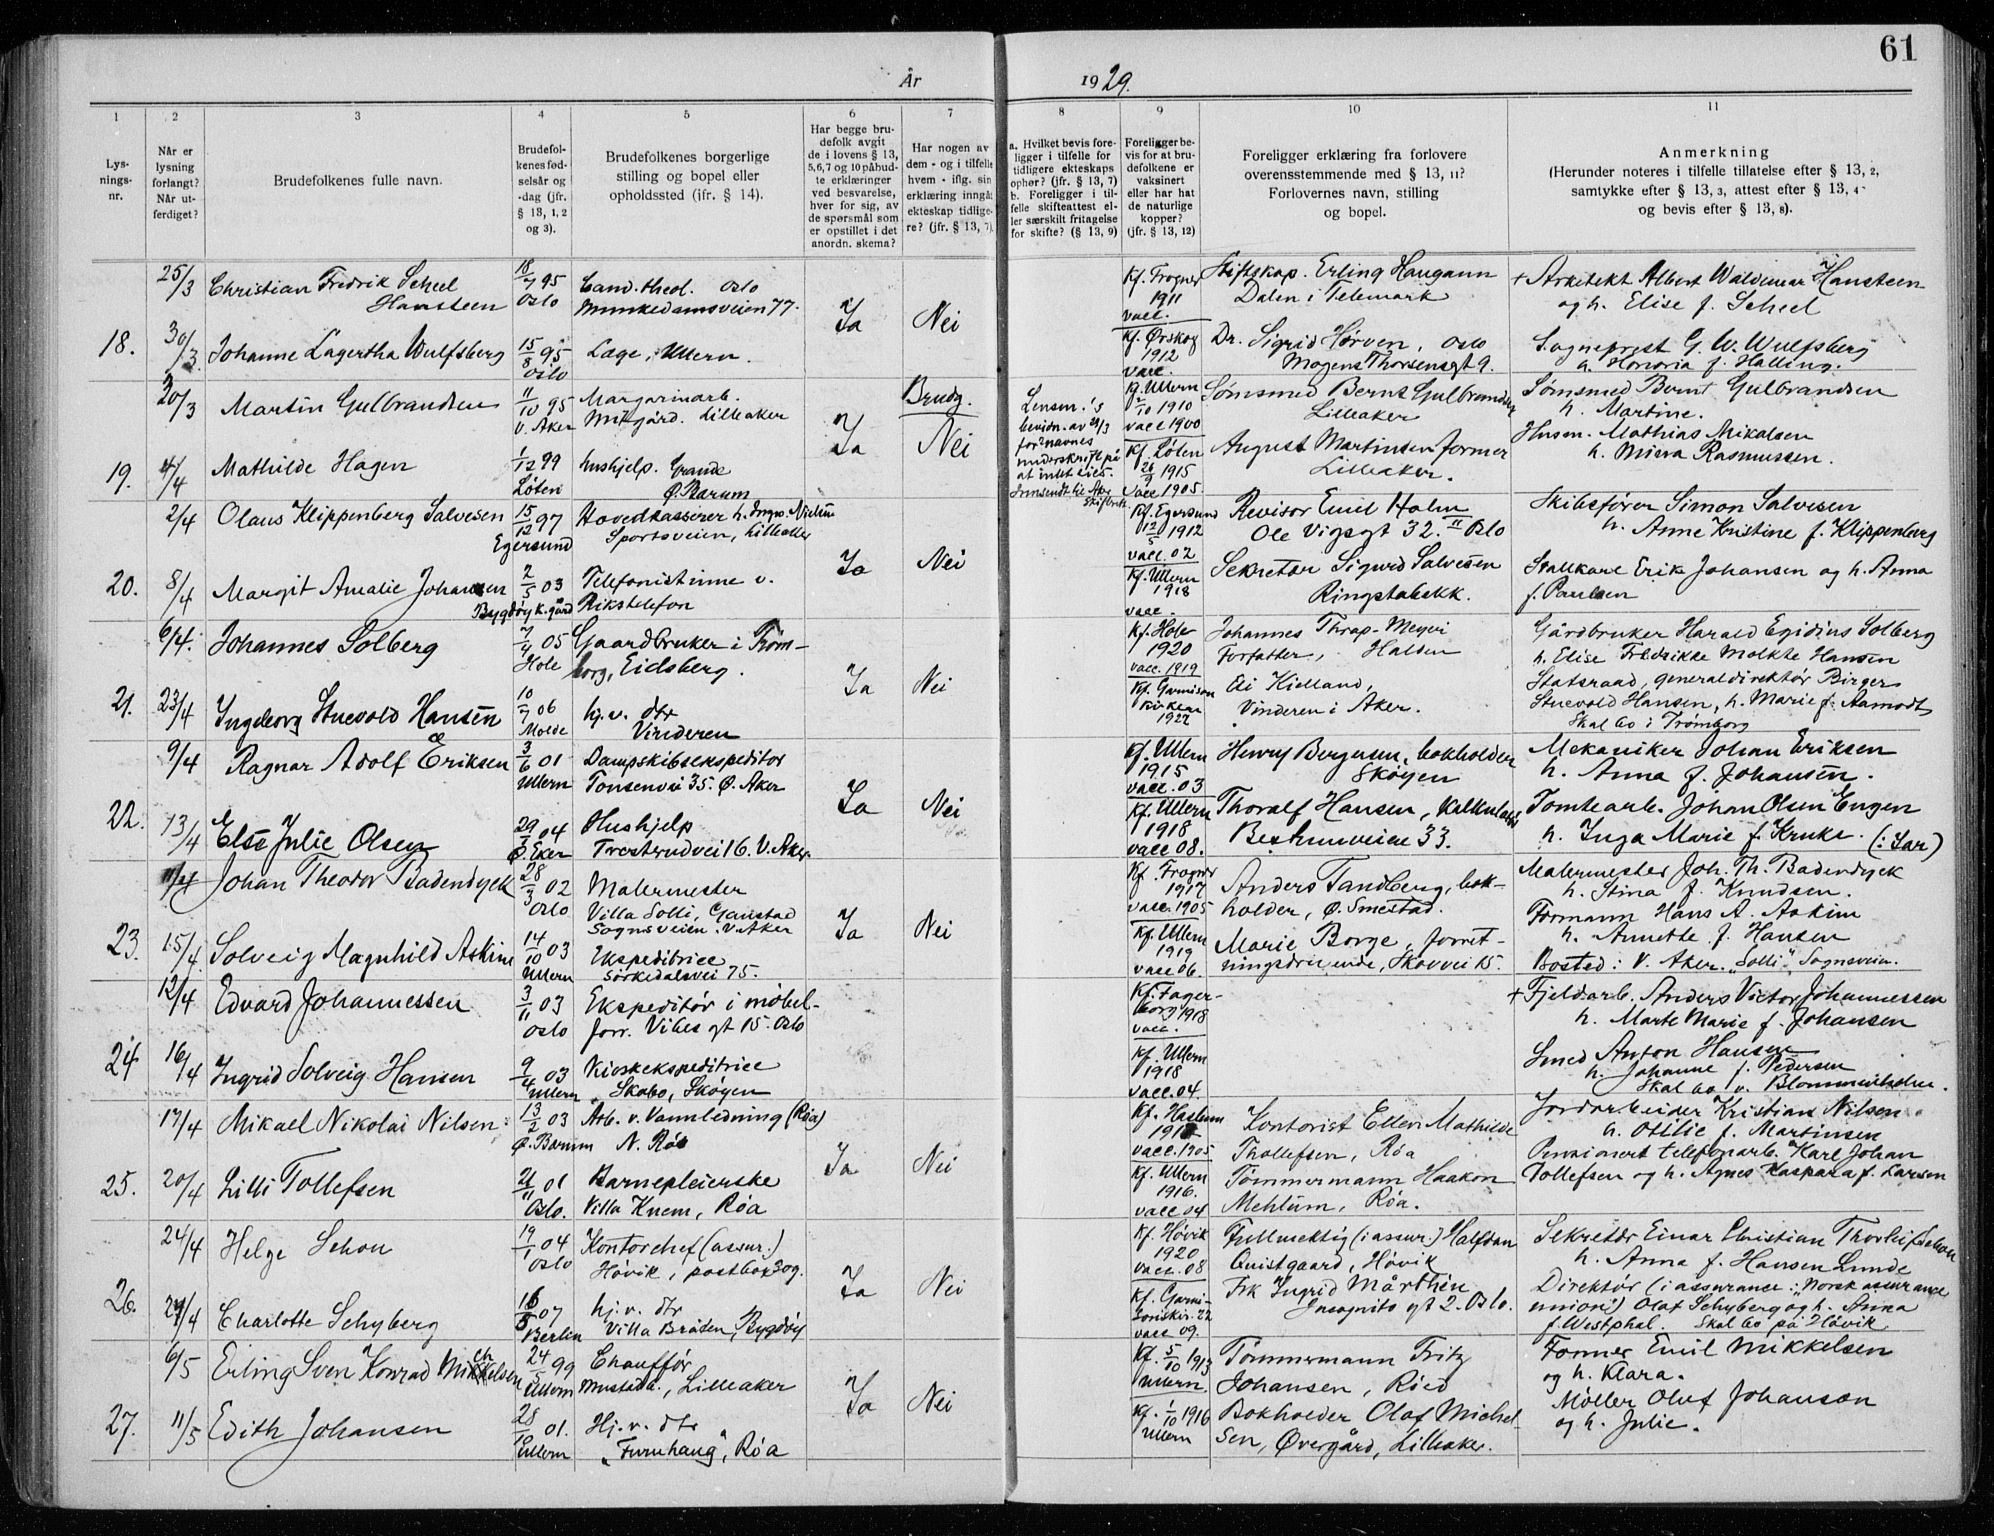 61
År 1929.
1 2 3 4 5 6 7 8 9 10 11
Lys-
nings-
nr.
Når er
lysning
forlangt?
Når ut-
ferdiget?
Brudefolkenes fulle navn.
Brudefol-
kenes fød-
selsår og
-dag (jfr.
§ 13, 1, 2
og 3).
Brudefolkenes borgerlige
stilling og bopel eller
opholdssted (jfr. § 14).
Har begge bru-
defolk avgit
de i lovens § 13,
5,6,7 og 10 påbud-
te erklæringer
ved besvarelse,
hver for sig, av
de spørsmål som
er opstillet i det
anordn. skema?
Har nogen av
dem - og i tilfelle
hvem - iflg. sin
erklæring inngåt
ekteskap tidlige-
re? (jfr. § 13, 7).
a. Hvilket bevis fore-
ligger i tilfelle for
tidligere ekteskaps
ophør? (jfr. § 13, 7)
b. Foreligger i til-
felle skifteattest el-
ler særskilt fritagelse
for skifte? (§ 13, 9)
Foreligger be-
vis for at bru-
defolkene er
vaksinert
eller har hat
de naturlige
kopper?
(jfr. § 13, 12)
Foreligger erklæring fra forlovere
overensstemmende med § 13, 11?
Forlovernes navn, stilling
og bopel.
Anmerkning
(Herunder noteres i tilfelle tillatelse efter § 13, 2,
samtykke efter § 13, 3, attest efter § 13, 4
og bevis efter § 13, 8).
18.
25/3
Christian Fredrik Scheel
Hansteen
18/7 95
Oslo
Cand. theol. Oslo
Munkedamsveien 77.
Ja
Nei
Kf. Frogner
1911
vacc.
Stiftskap. Erling Haugann
Dalen i Telemark
+ Arkitekt Albert Waldemar Hansteen
og h. Elise f. Scheel
30/3
Johanne Lagertha Wulfsberg
15/8 95
Oslo
Læge, Ullern.
Kf. Ørskog
1912
vacc.
Dr. Sigrid Hørven, Oslo
Mogens Thorsensgt 9.
Sogneprest G. W. Wulfsberg
h. Honoria f. Halling.
19.
20/3
Martin Gulbrandsen
11/10 95
V. Aker
Margarinarb.
Midgård. Lilleaker
Ja
Brudg.
Nei
Lensm.'s
bevidn. av 21/3
for navnes
underskrift på
at intet eies.
Innsendt til Aker
Skifterett.
Kf. Ullern
2/10 1910
vacc 1900
Sømsmed Bernt Gulbrandsen
Lilleaker
Sømsmed Bernt Gulbrandsen
h. Martine.
4/4
Mathilde Hagen
1/12 99
Løten
hushjelp. Grande
Ø. Bærum
Kf. Løten
26/9 1915
Vacc 1905
August Martinsen former
Lilleaker.
Husm. Mathias Mikalsen
h. Miera Rasmussen.
20.
2/4
Olaus Klippenberg Salvesen
15/12 97
Egersund
Hovedkasserer h. Ingw. Nielsen
Sportsveien, Lilleaker
Ja
Nei
Kf. Egersund
12/5 1912
vacc. 02
Revisor Emil Holm
Ole Vigsgt 32. II Oslo
Skibsfører Simon Salvesen
h. Anne Kristine f. Klippenberg
8/4
Margit Amalie Johansen
2/5 03
Bygdøy k. gård
Telefonistinne v.
Rikstelefon
Kf. Ullern
1918
vacc.
Sekretær Sigurd Salvesen
Ringstabekk.
Stallkarl Erik Johansen og h. Anna
f. Paulsen
21.
6/4.
Johannes Solberg
7/4 05
Hole
Gaardbruker i Trøm-
borg, Eidsberg.
Ja
Nei
Kf. Hole
1920
vacc. 1919
Johannes Thrap-Meyer
Forfatter, Halden
Gårdbruker Harald Egidius Solberg
h. Elise Fredrikke Moltke Hansen
23/4
Ingeborg Stuevold Hansen
10/7 06
Molde
hj.v. dtr
Vinderen
Kf. Garnison
kirken
1922
Eli Kielland,
Vinderen i Aker.
Statsraad, generaldirektør Birger
Stuevold Hansen, h. Marie f. Aamodt
Skal bo i Trømborg
22.
9/4
Ragnar Adolf Eriksen
3/6 01
Ullern
Dampskibsekspeditør
Tonsenvei 35. Ø. Aker
Ja
Nei
Kf. Ullern
1915
vacc. 03
Henry Bergersen, bokholder
Skøyen
Mekaniker Johan Eriksen
h. Anna f. Johansen.
13/4
Else Julie Olsen
Ø. Eker
Hushjelp
Trosterudvei 16. V. Aker.
Kf. Ullern
1918
vacc 08.
Thoralf Hansen, kalkulatør
Bestumveien 33.
Tomtearb. Johan Olsen Engen
h. Inga Marie f. Kruke. (: Lar)
23.
11/4
Johan Theodor Badendyck
28/3 02
Oslo
Malermester
Villa Solli, Gaustad
Sognsveien. V. Aker
Ja
Nei
Kf. Frogner
1917
vacc. 1905
Anders Tandberg, bok-
holder, Ø. Smestad.
Malermester Joh. Th. Badendyck
h. Stina f. Knudsen.
15/4
Solveig Magnhild Askim
14/10 03
Ullern
Ekspeditrice
Sørkedalsvei 75.
Kf. Ullern
1919
vacc 06.
Marie Borge, forret-
ningsdrivende, Skovvei 15.
Formann Hans A. Askim
h. Annette f. Hansen
Bosted: V. Aker. „Solli" Sognsveien.
24
12/4
Edvard Johannessen
3/11 03
Oslo
Ekspeditør i møbel-
forr. Vibes gt 15. Oslo
Kf. Fager-
borg 1918
vacc.
+ Fjeldarb. Anders Victor Johannessen
h. Marte Marie f. Johansen
16/4
Ingrid Solveig Hansen
9/4 03
Ullern
Kioskekspeditrice
Skabo, Skøyen
Kf. Ullern
1918
vacc. 04.
Smed Anton Hansen
h. Johanne f. Pedersen
Skal bo v. Blommenholm.
25.
17/4
Mikael Nikolai Nilsen
13/2 03
Ø. Bærum
Arb. v. Vannledning (Røa)
N. Røa
Ja
Nei
Kf. Haslum
vacc. 1905
Kontorist Ellen Mathilde
Thollefsen, Røa
Jordarbeider Kristian Nilsen
h. Otilie f. Martinsen
20/4
Lilli Tollefsen
21/11 01
Oslo.
Barnepleierske
Villa Knem, Røa
Kf. Ullern
1916.
vacc 04
Tømmermann Haakon
Mehlum, Røa.
Pensionert telefonarb. Karl Johan
Tollefsen og h. Agnes Kaspara f. Larsen
26.
24/4
Helge Schou
19/1 04
Oslo
Kontorchef (assur.)
Høvik, postbox 309.
Ja
Nei
Kf. Høvik
1920
vacc. 08
Fullmektig (i assur.) Halfdan
Quistgaard, Høvik
Sekretær Einar Christian Thorleif Schou
h. Anna f. Hansen Lunde
Charlotte Schyberg
Berlin
hj.v. dtr
Villa Bråten, Bygdøy
Kf. Garni-
sonskir. 22
vacc 09.
Frk Ingrid Mårthen
Incognito gt 2. Oslo.
Direktør (i assuranse: „Norsk assuranse
union") Olaf Schyberg og h. Anna
f. Westphal. Skal bo på Høvik
27.
6/5
Erling Sven Konrad Mikkelsen
24/5 99
Ullern
Chauffør
Mustad., Lilleaker
Ja
Nei
Kf. 5/10 1913
Ullern
Tømmermann Fritz
Johansen, Røed
Former Emil Mikkelsen
og h. Klara.
11/5
Edith Johansen
28/10 01.
Ullern
Hj.v. dtr
„Furuhaug", Røa
Kf. 1/10 1916
Ullern
Bokholder Olaf Michel-
sen, Øvergård, Lilleaker.
Møller Oluf Johanson
og h. Julie.